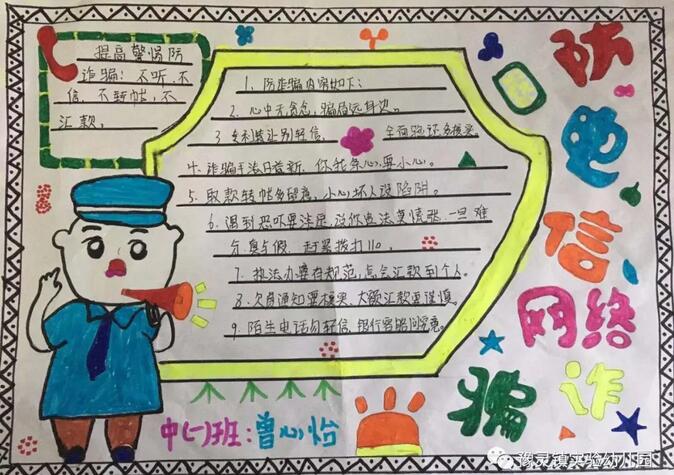 提高警惕防
诈骗：不听、不
信、不转帐、不
汇款。
1、防诈骗内容如下：
2、心中无贪念，骗局远身边。
3、 让别轻信，
4、诈骗手法日 新，你我 心要小心。
5、取款转帐多留意，小心坏人设陷阱。
6、遇到恐吓要 ，没做违法莫慌张，一旦难
分 假，赶紧拨打110。
7、执法办案有规范，怎会汇款到个人。
8、欠费通知要核实，大额汇款要谨慎。
9、陌生电话勿轻信，银行密码
防电信
网络
诈骗
中(一)班：曾心怡
豫灵镇实验幼儿园